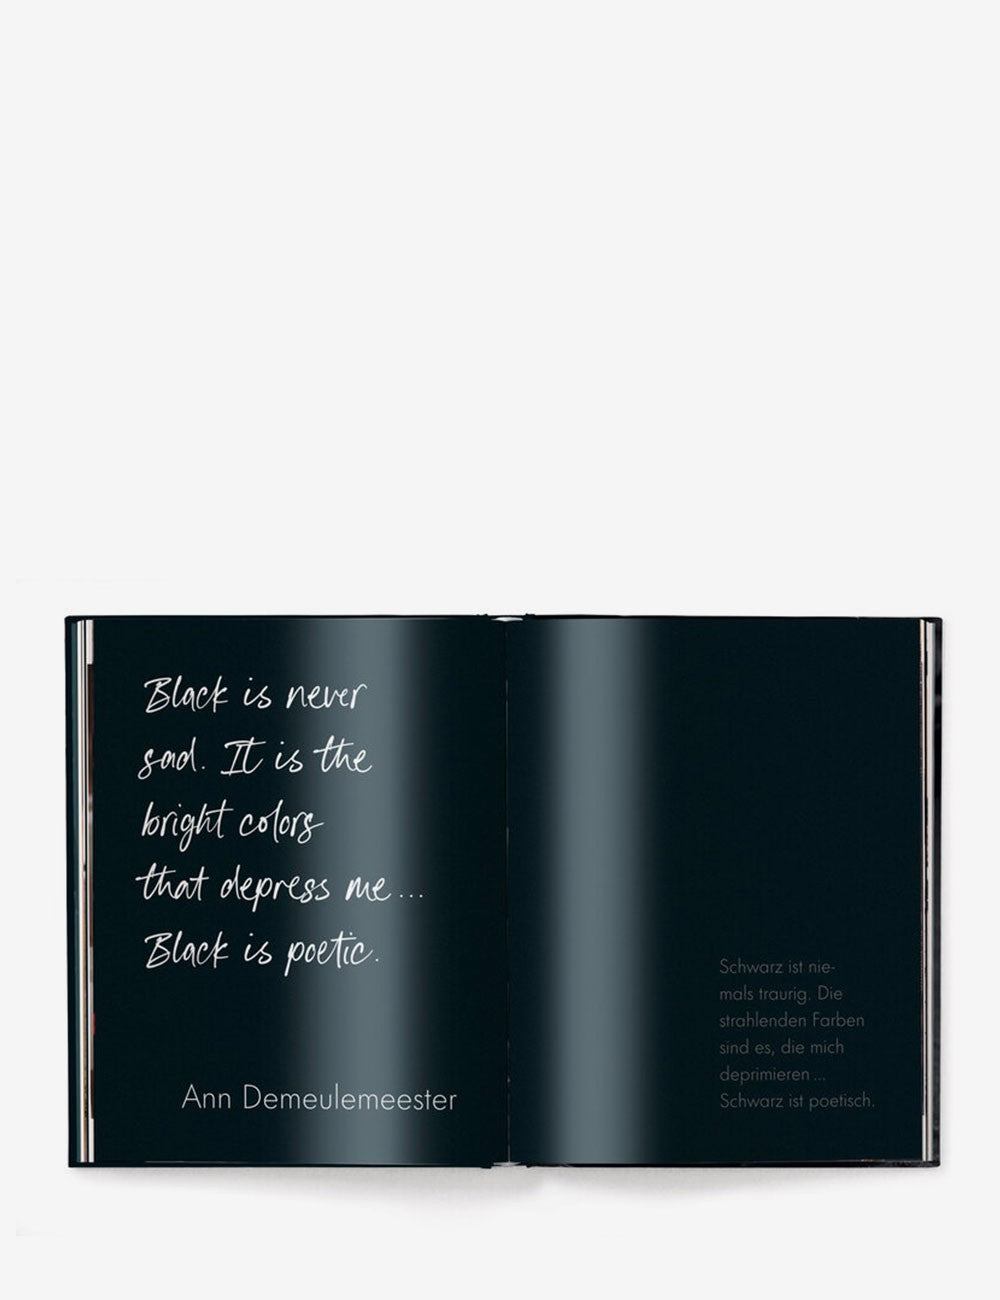 Black is never
sad. It is the
bright colors
that depress me ...
Black is poetic.
Ann Demeulemeester
Schwarz ist nie-
mals traurig. Die
strahlenden Farben
sind es, die mich
deprimieren ...
Schwarz ist poetisch.